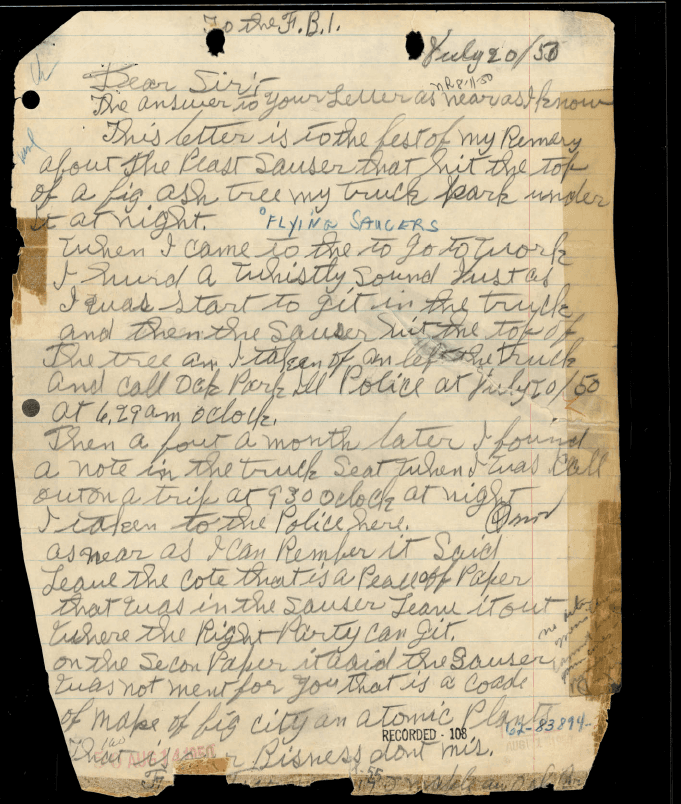 To the F.B.I.
July 20/50
Dear Sir:-
NR 8-11-50
The answer to your Letter as near as I know
This letter is to the best of my Remery
about the Plast Sauser that hit the top
of a big ash tree my truck park under
it at night.
"FLYING SAUCERS
When I came to the to Go to Work
I hurd a whistly sound Just as
I was start to git in the truck
and then the Sauser hit the top of
The tree an I taken of an lef the truck
and call Oak Park Ill Police at July 20/50
at 6,29 am oclock.
Then a bout a month later I found
a note in the truck Seat when I was Call
out on a trip at 930 oclock at night
I taken to the Police here.
as near as I can Rember it Said
Leave the Cote that is a Peace of Paper
that was in the Sauser Leave it out
Where the Right Party can git.
on the Secon Paper it said the Sauser
was not ment for you that is a Coade
of make of big city an atomic Plants
RECORDED - 108
62-83894-
That is Bisness dont mis.